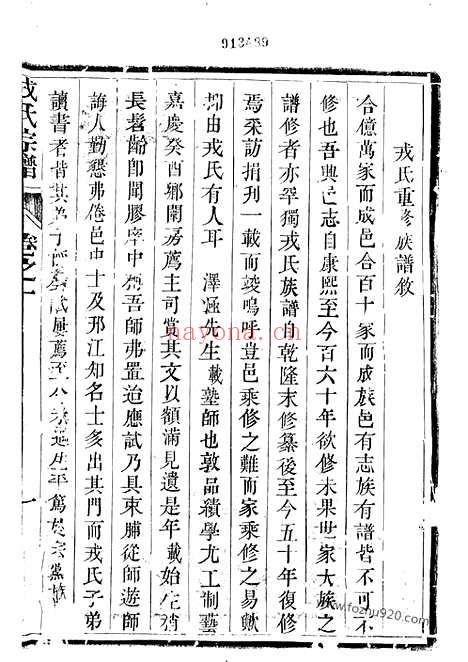 913489
戎氏重修族譜敘
合億萬家而成邑合百十家而成族邑有志族有譜皆不可不
修也吾興邑志自康熙至今百六十年欲修未果世家大族之
譜修者亦罕獨戎氏族譜自乾隆末修纂後至今五十年復修
焉采訪捐刊一載而竣嗚呼豈邑乘修之難而家乘修之易歟
抑由戎氏有人耳 澤 先生載塾師也敦品績學尤工制藝
嘉慶癸酉鄉闈房薦主司賞其文以額滿見遺是年載始 稍
長髫齡即聞膠庠中 吾師弗置迨應試乃具束脯從師遊師
誨人勤懇弗倦邑中士及邗江知名士多出其門而戎氏子弟
讀書者皆其弟子 試屢薦 年篤
戎氏宗譜
卷之一
一
nayona.cn
www.fozhu920.com